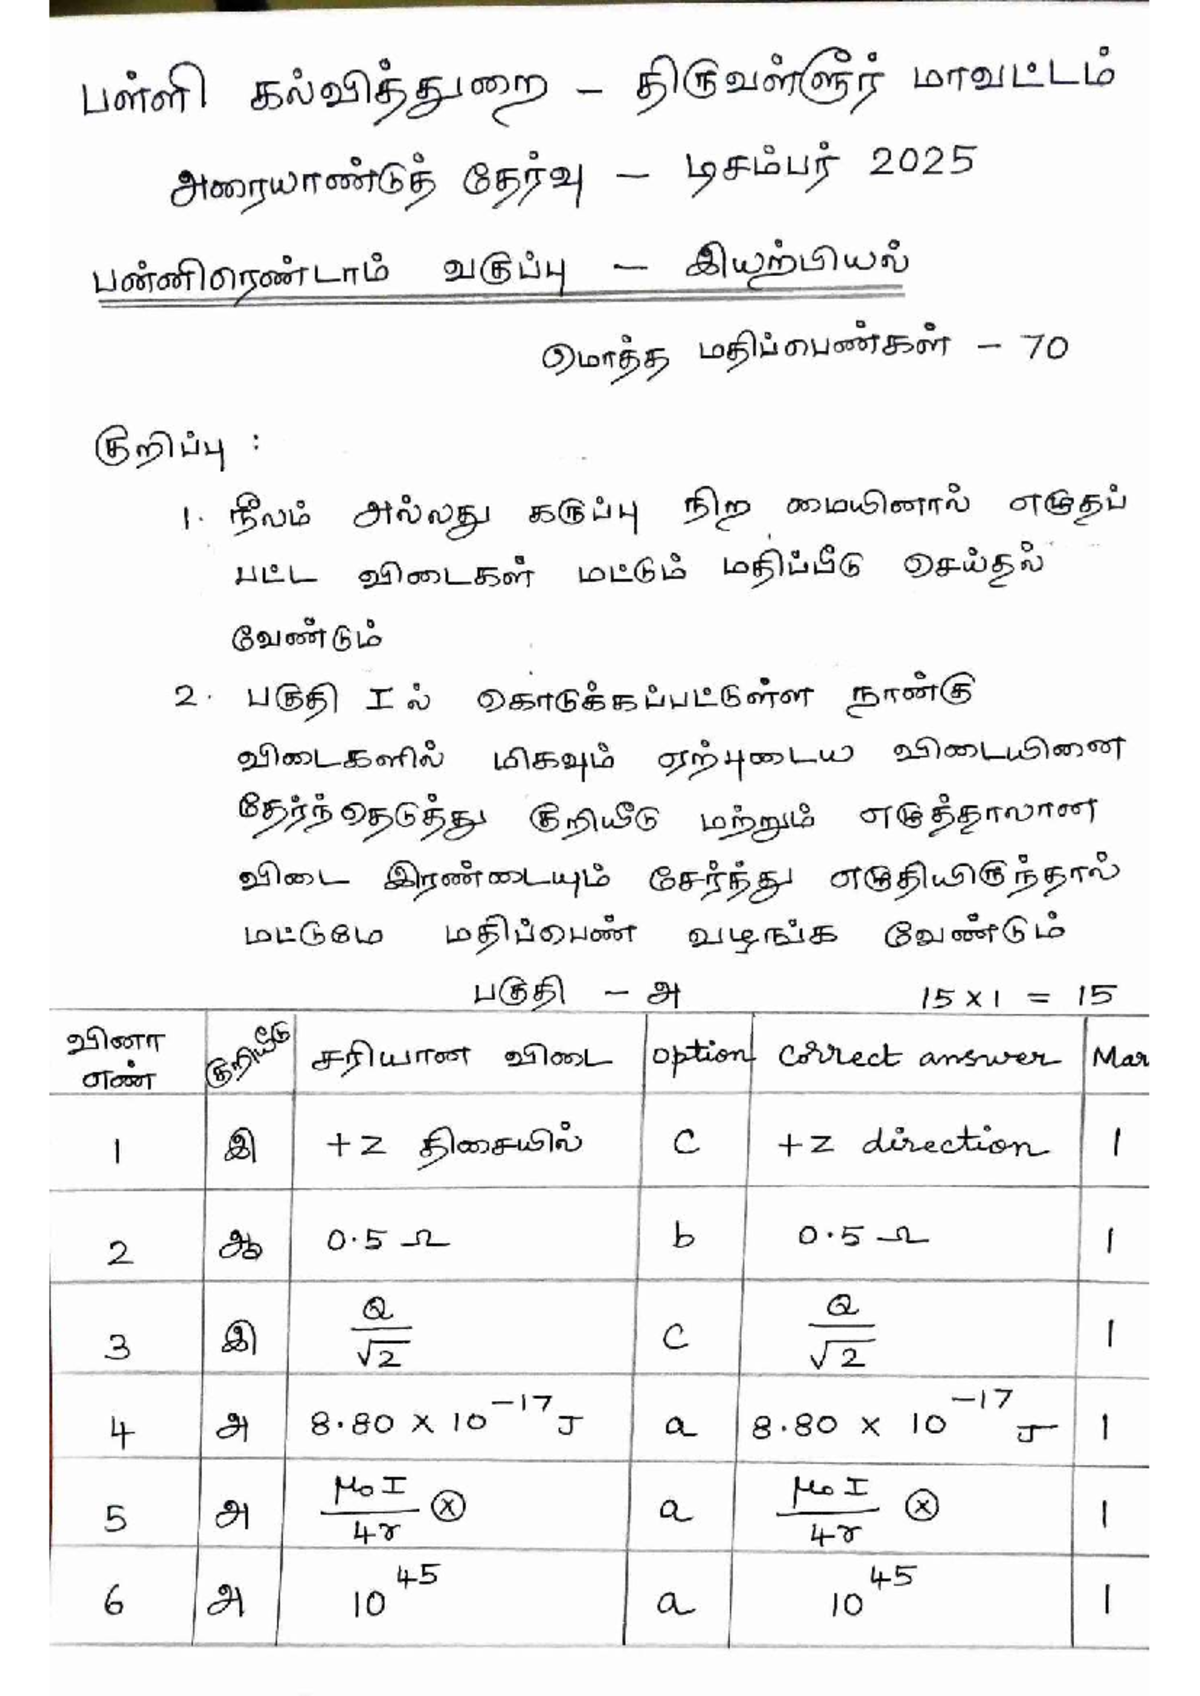 பள்ளி கல்வித்துறை – திருவள்ளூர் மாவட்டம்
அரையாண்டுத் தேர்வு – டிசம்பர் 2025
பன்னிரெண்டாம் வகுப்பு – இயற்பியல்
மொத்த மதிப்பெண்கள் – 70
குறிப்பு :
1. நீலம் அல்லது கருப்பு நிற மையினால் எழுதப்
பட்ட விடைகள் மட்டும் மதிப்பீடு செய்தல்
வேண்டும்
2. பகுதி I ல் கொடுக்கப்பட்டுள்ள நான்கு
விடைகளில் மிகவும் ஏற்புடைய விடையினை
தேர்ந்தெடுத்து குறியீடு மற்றும் எழுத்தாலான
விடை இரண்டையும் சேர்ந்து எழுதியிருந்தால்
மட்டுமே மதிப்பெண் வழங்க வேண்டும்
பகுதி – அ 15 x 1 = 15
வினா எண் குறியீடு சரியான விடை option correct answer Mar
1 இ +z திசையில் c +z direction 1
2 ஆ 0.5 Ω b 0.5 Ω 1
3 இ Q/√2 c Q/√2 1
4 அ 8.80 x 10⁻¹⁷ J a 8.80 x 10⁻¹⁷ J 1
5 அ μ₀I/4r ⊗ a μ₀I/4r ⊗ 1
6 அ 10⁴⁵ a 10⁴⁵ 1